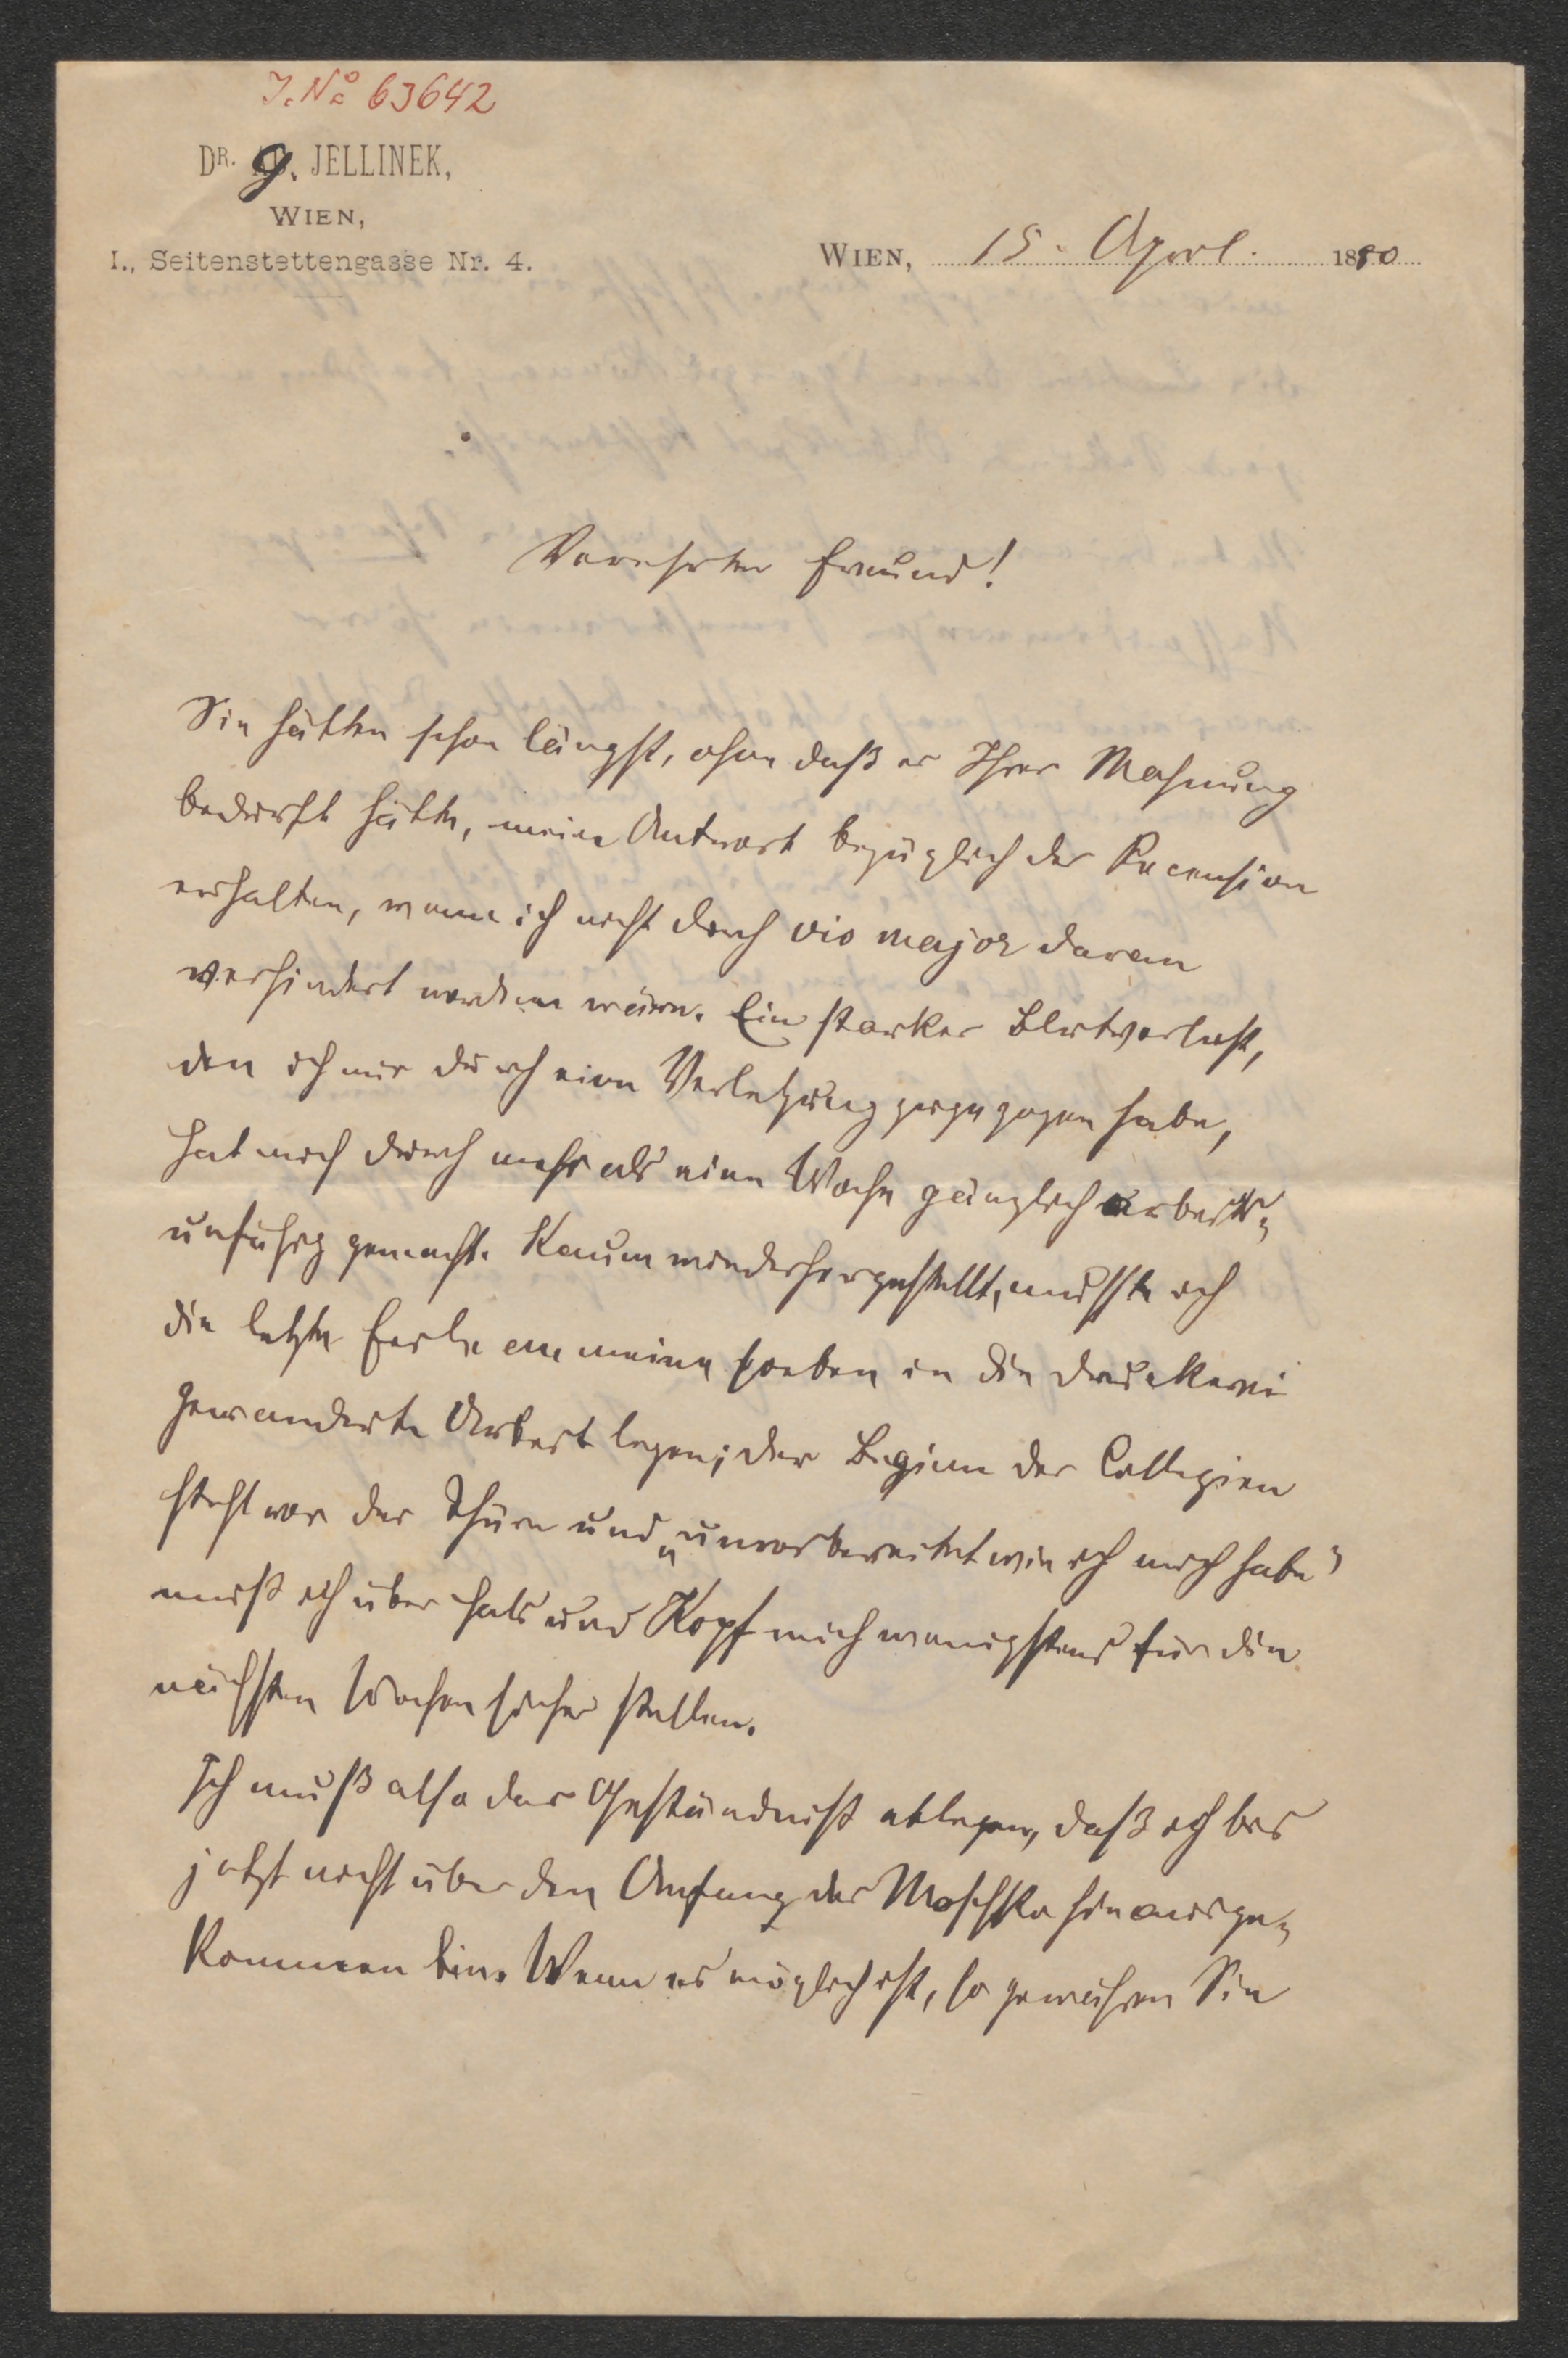 J. No 63642
DR. G. JELLINEK,
WIEN,
I., Seitenstettengasse Nr. 4.
WIEN, 15. April. 1880
Verehrter Freund!
Sie hätten schon längst, ohne daß es Ihrer Mahnung
bedurft hätte, meine Antwort bezüglich der Recension
erhalten, wenn ich nicht durch vis major daran
verhindert worden wäre. Ein starker Blutverlust,
den ich mir durch eine Verletzung zugezogen habe,
hat mich durch mehr als eine Woche gänzlich arbeits-
unfähig gemacht. Kaum wiederhergestellt, mußte ich
die letzte Feile an meine soeben in die Druckerei
gewanderte Arbeit legen; der Beginn der Collegien
steht vor der Thüre und „unvorbereitet wie ich mich habe“
muß ich über Hals und Kopf mich wenigstens für die
nächsten Wochen sicher stellen.
Ich muß also das Geständniß ablegen, daß ich bis
jetzt nicht über den Anfang der Moschko hinausge-
kommen bin. Wenn es möglich ist, so gewähren Sie